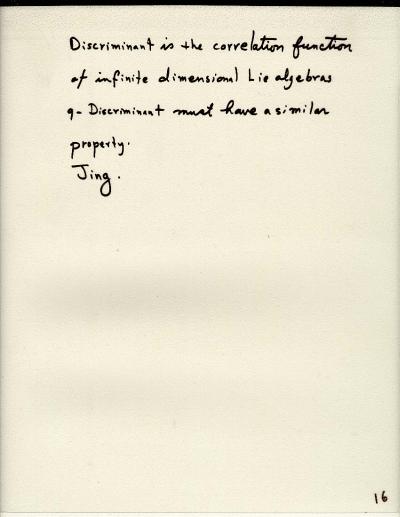 Discriminant is the correlation function
of infinite dimensional Lie algebras
q- Discriminant must have a similar
property.
Jing.
16